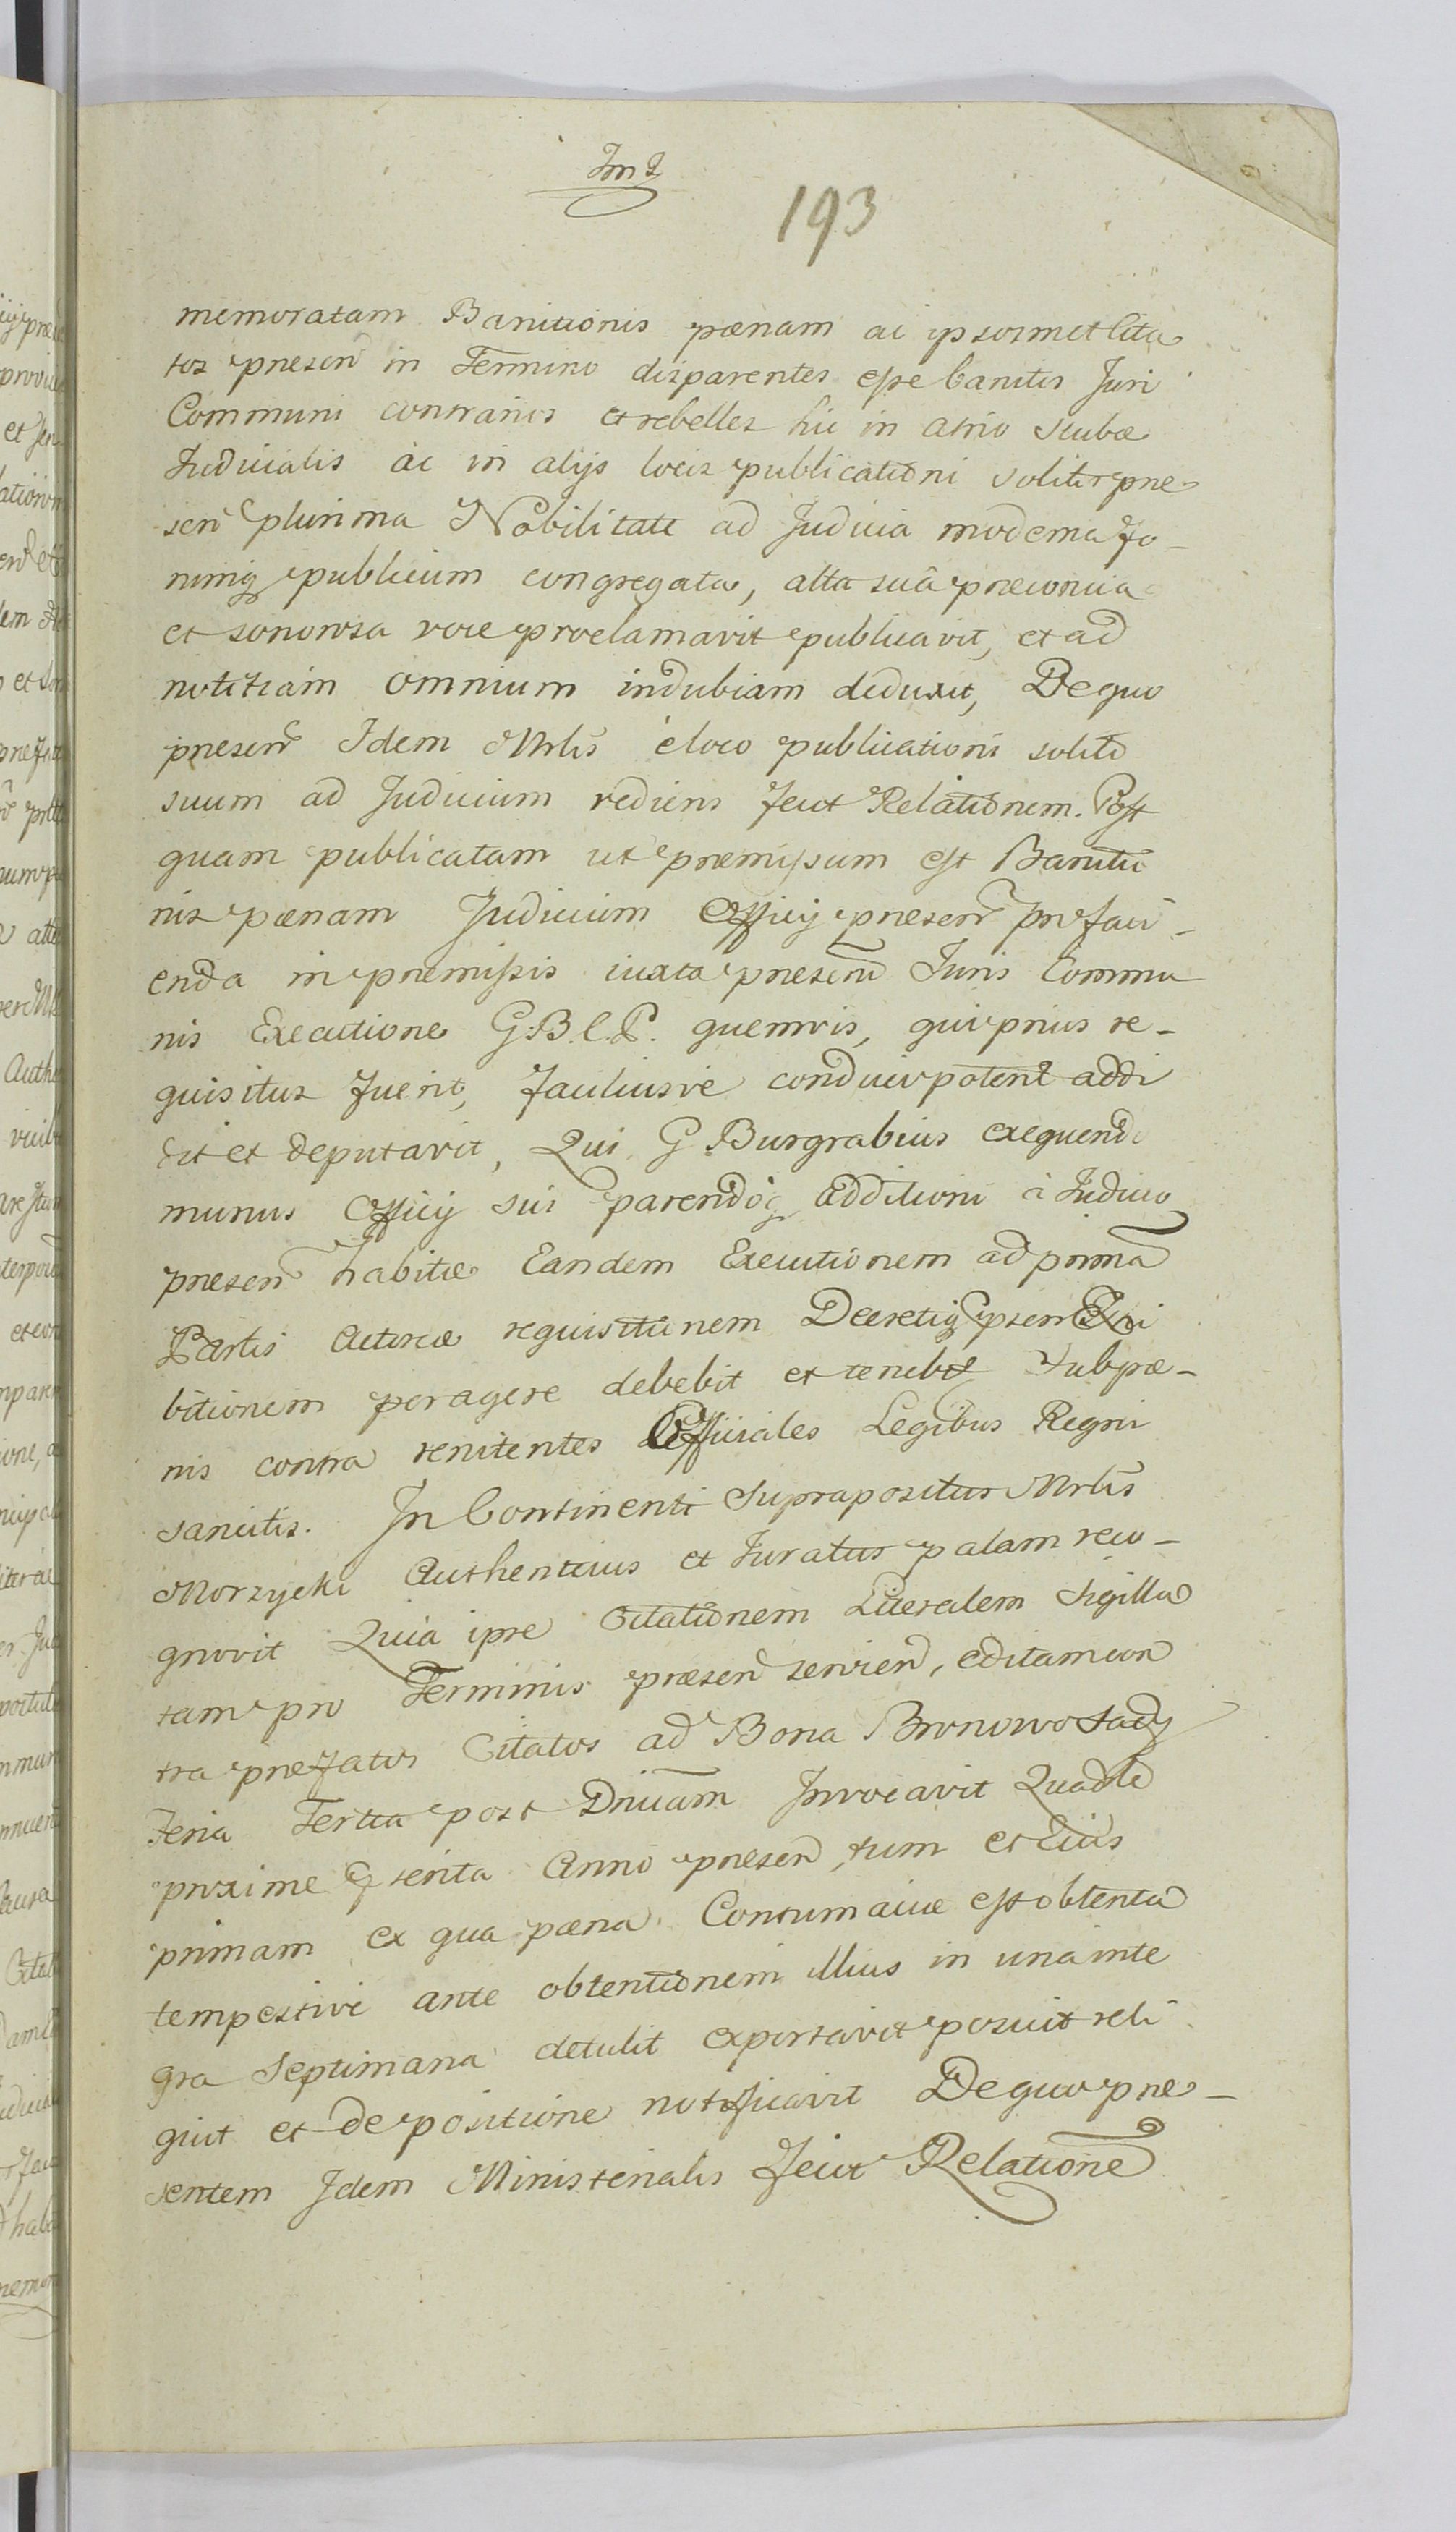 193
memoratam Banitionis pænam ac ipsosmet Cita
tos præsen in Termino disparentes esse banitos Juri
Communi contrarios et rebelles hic in atrio stubæ
Judicialis ac in alijs locis publicationi solitis præ
sen plurima Nobilitate ad Judicia moderna fo-
rumq publicum congregata, alta suâ præconica
et sonorosa voce proclamavit publicavit, et ad
notitiam omnium indubiam deduxit, De quo
præsen Idem Mrlis é loco publicationi solito
suum ad Judicium rediens fecit Relationem. Post
quam publicatam ut præmissum est Banitio
nis pænam Judicium Officij præsen pro faci-
enda in præmissis iuxta præsen Juris Commu
nis Executione G. B. C. P. quemvis, qui prius re-
quisitus fuerit, faciliusve conduci poterit addi
dit et deputavit, Qui G Burgrabius exequendo
munus Officij sui parendoq additioni à Judicio
præsen habitæ Eandem Executionem ad primã
Partis Actoreæ requisitionem Decretiq præsen Exhi
bitionem peragere debebit et tenebit Sub pæ-
nis contra renitentes Officiales Legibus Regni
sancitis. In Continenti Suprapositus Mrlis
Morzycki Authenticus et Juratus palam reco-
gnovit Quia ipse Citationem Literalem Sigilla
tam pro Terminis præsen servien, editam con
tra præfatos Citatos ad Bona Bronowo Sady
Feria Tertia post Dnicam Invocavit Quadle
proxime præterita Anno præsen, tum et Eius
primam ex qua pæna Contumaciæ est obtenta
tempestive ante obtentionem illius in una inte
gra Septimana detulit exportavit posuit reli
quit et de positione notificavit De quo præ-
sentem Idem Ministerialis fecit Relatione